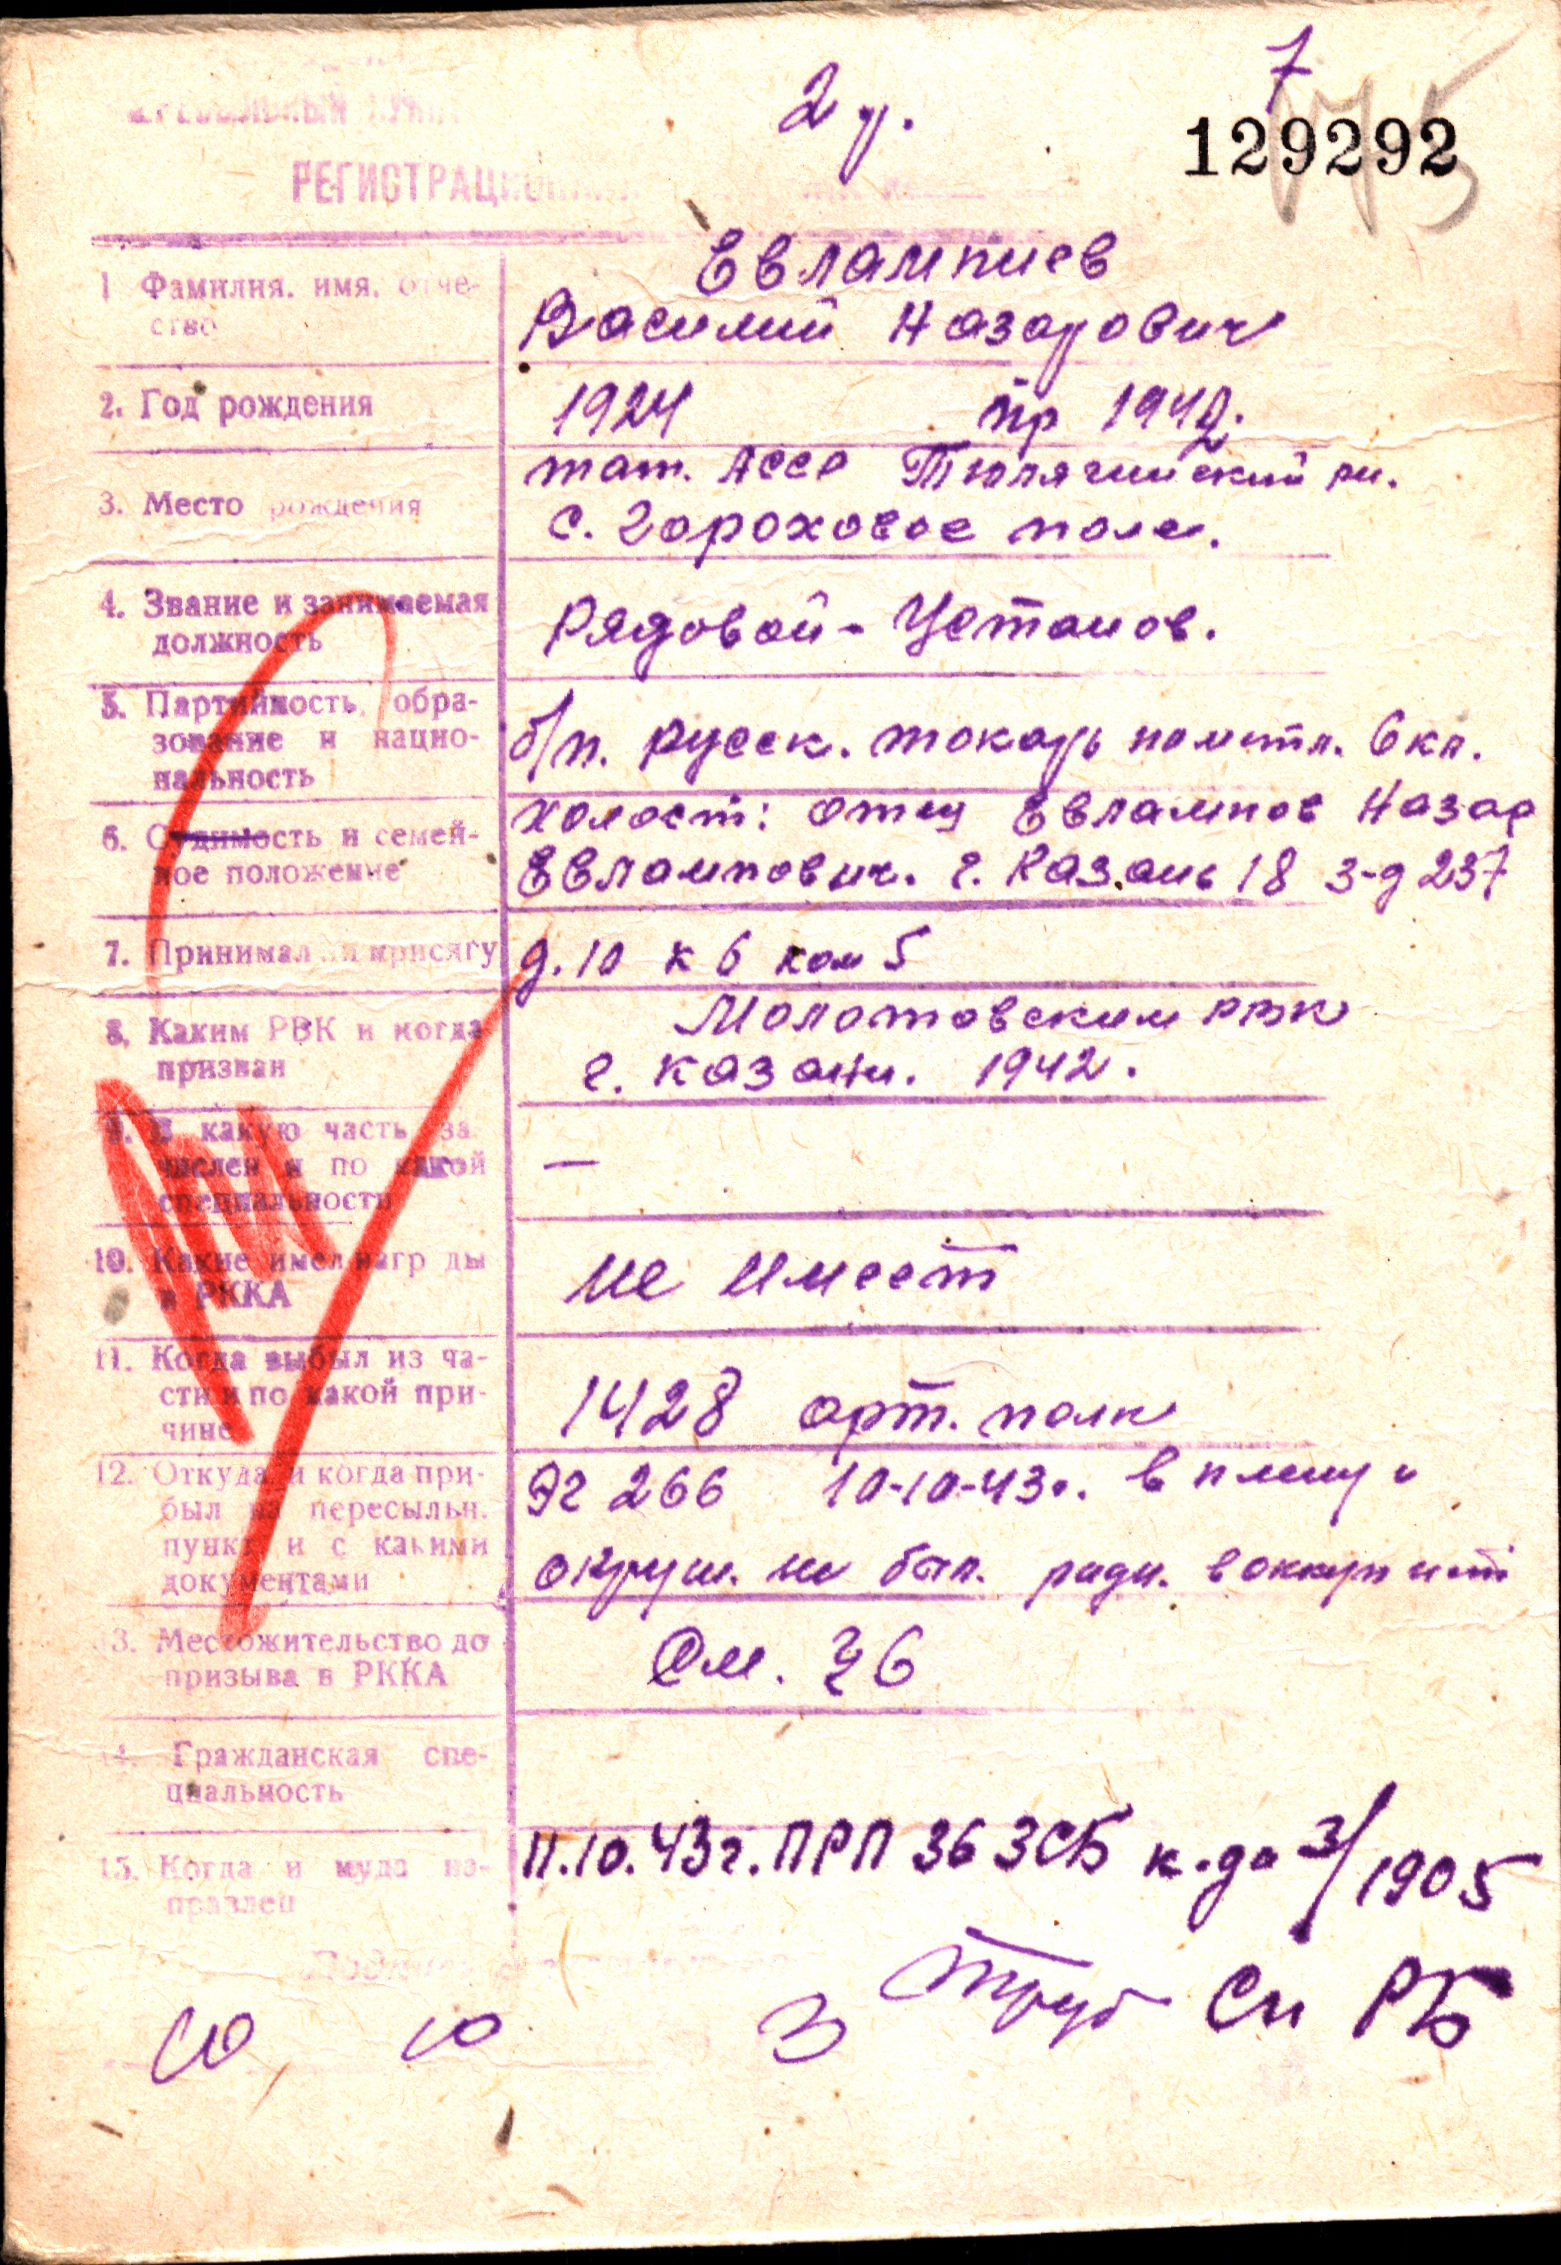 7
2 у.
129292
РЕГИСТРАЦИОН
Евлампиев
1 Фамилия, имя, отче-
ство
Василий Назарович
2. Год рождения
1924 пр 1942.
3. Место рождения
тат. АССР Тюлячинский рн.
с. Гороховое поле.
4. Звание и занимаемая
должность
Рядовой - Установ.
5. Партийность, обра-
зование и нацио-
нальность
б/п. русск. токарь по метл. 6 кл.
6. Судимость и семей-
ное положение
холост: отец Евлампов Назар
Евлампович. г. Казань 18 з-д 237
7. Принимал ли присягу
д. 10 к 6 ком 5
8. Каким РВК и когда
призван
Молотовским рвк
г. Казани. 1942.
9. В какую часть за-
числен и по какой
специальности
—
10. Какие имел нагр ды
в РККА
не имеет
11. Когда выбыл из ча-
сти и по какой при-
чине
1428 арт. полк
12. Откуда и когда при-
был на пересыльн.
пункт и с какими
документами
ЭГ 266 10-10-43г. в плену и
окруж. не был.
13. Местожительство до
призыва в РККА
См. 6
14. Гражданская спе-
циальность
15. Когда и куда на-
правлен
11.10.43г. ПРП 36 ЗСБ к-да 3/1905